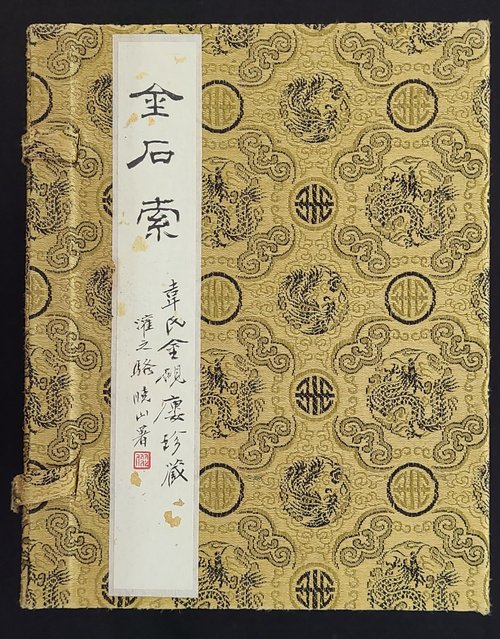 金石索
韋氏金硯廔珍藏
濰之駱曉山署